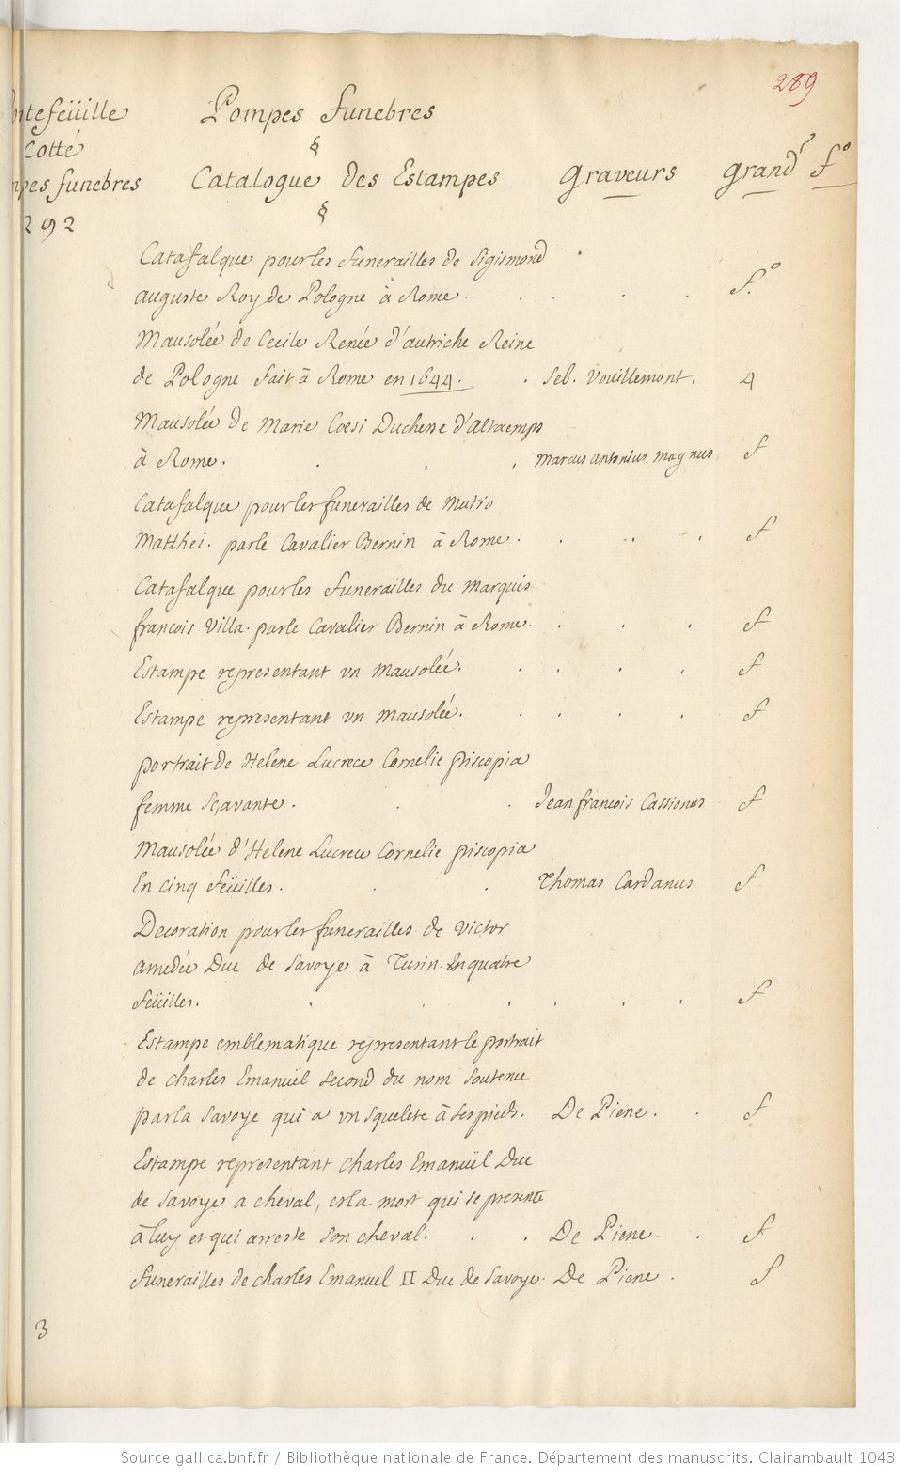 289
ortefeüille Pompes funebres
Cotté §
pes funebres Catalogue des Estampes Graveurs grandr fo
292 §
Catafalque pour les funerailles de Sigismond
auguste Roy de Pologne à Rome. fo
Mausolée de Cecile Renée d'autriche Reine
de Pologne fait à Rome en 1644. Seb. Vouillemont. 4
Mausolée de Marie Cesi Duchesse d'altaemps
à Rome. Marcus antonius magnus f
Catafalque pour les funerailles de Mutio
Matthei. par le Cavalier Bernin à Rome. f
Catafalque pour les funerailles du Marquis
francois Villa. par le Cavalier Bernin à Rome. f
Estampe representant vn mausolée. f
Estampe representant vn mausolée. f
portrait de Helene Lucrece Cornelie piscopia
femme sçavante. Jean francois Cassionus f
Mausolée d'Helene Lucrece Cornelie piscopia
En cinq feüilles. Thomas Cardanus f
Decoration pour les funerailles de Victor
amedée Duc de Savoye à Turin. En quatre
feüilles. f
Estampe emblematique representant le portrait
de charles Emanuel second du nom soutenu
par la Savoye qui a vn squelete à ses pieds. De Piene. f
Estampe representant charles Emanuël Duc
de Savoye a cheval, et la mort qui se presente
à luy et qui arreste son cheval. De Piene f
funerailles de charles Emanuel II Duc de Savoye. De Piene. f
3
Source gallica.bnf.fr / Bibliothèque nationale de France. Département des manuscrits. Clairambault 1043